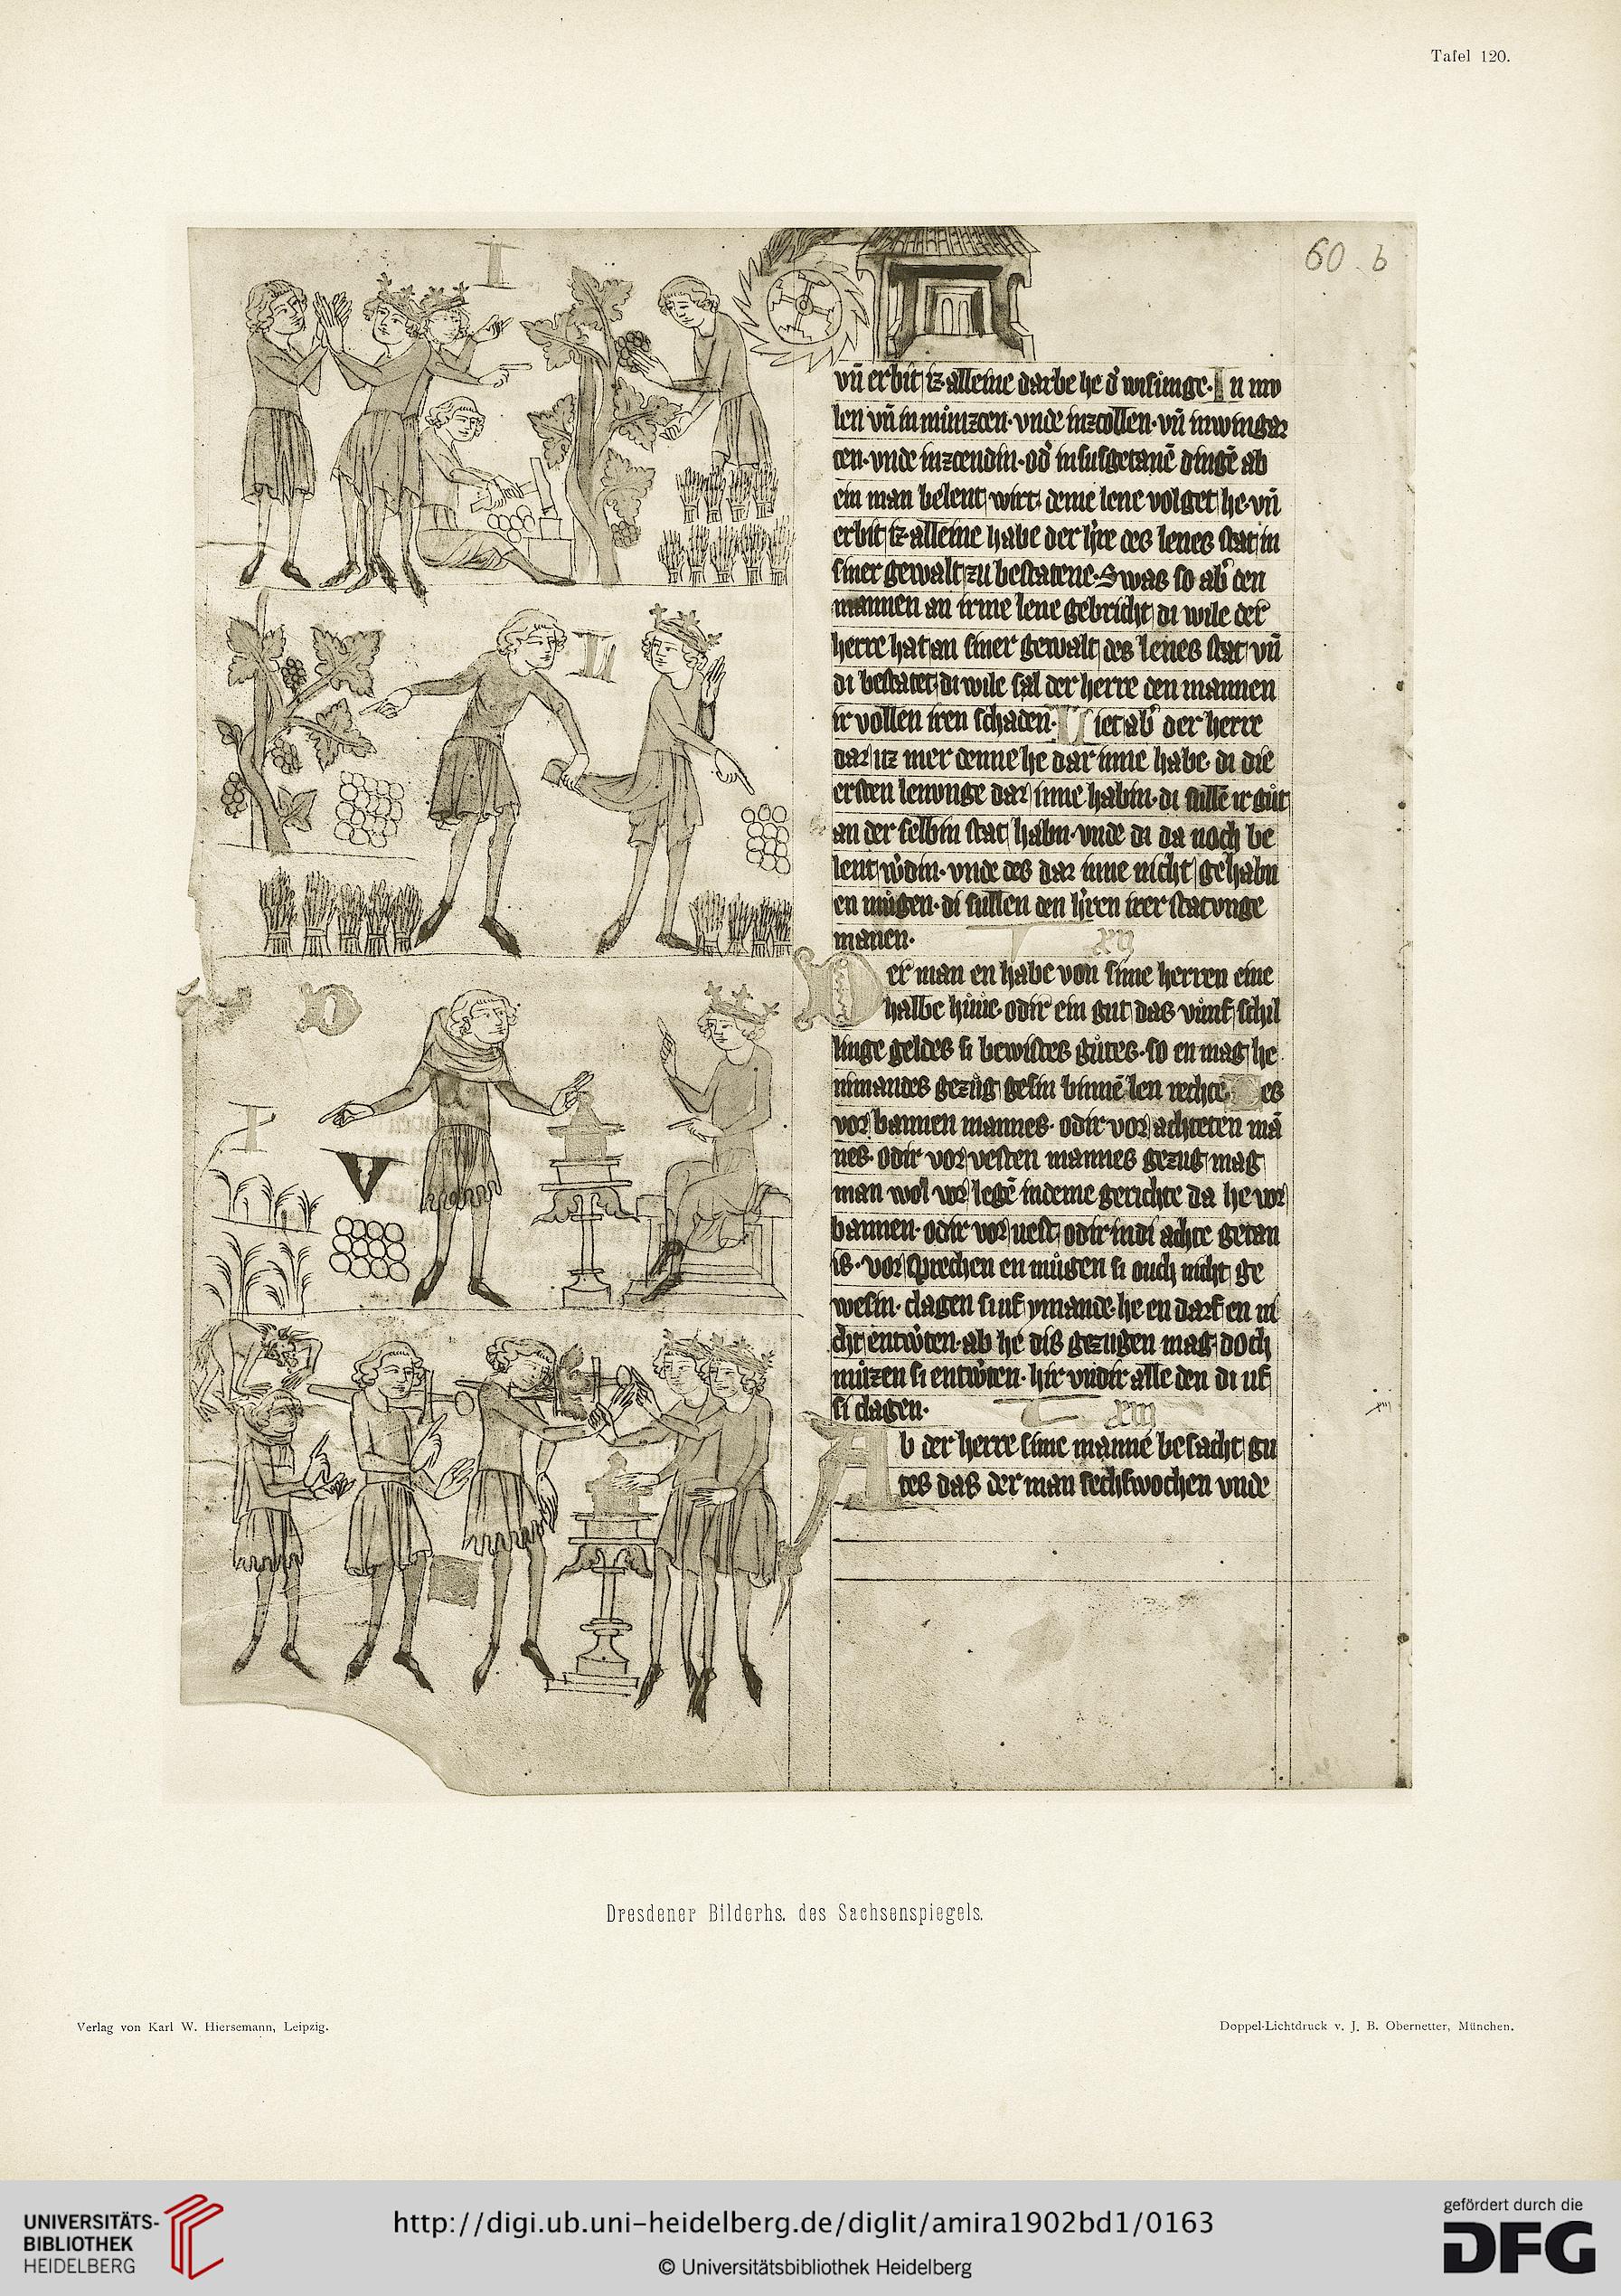 Tafel 120.
60 b
I
vn̄ erbit iz alleine darbe he d' wisunge. In mo
len vn̄ in münzcen. vnde inzcollen. vn̄ inwingar
ten. vnde inzcendin. od' insusgetanē dingē ab
ein man belent wirt. deme lene volget he. vn̄
erbit iz alleine habe der h're des lenes stat in
siner gewalt zu bestatene. Swas so ab' den
mannen an irme lene gebricht di wile der
herre hat an siner gewalt des lenes stat vn̄
di bestatet di wile sal der herre den mannen
ir vollen iren schaden. Liet ab' der herre
dar uz mer denne he dar inne habe. di die
ersten lenunge dar inne habin. di sullē ir gůt
an der selbin stat habin. vnde di da noch be
lent w'din. vnde des dar inne nicht gehabn
en můgen. di sullen den h'ren irer statunge
manen. T xij
Der man en habe von sime herren eine
halbe hůue. odir ein gut das vünf schil
linge geldes si bewistes gůtes. so en mag he
nimandes gezüg gesin binnē len rechte. Des
vor bannen mannes. odir vor achteten mā
nes. odir vor vesten mannes gezug mag
man wol vor legē indeme gerichte da he vor
bannen. odir vor uest odir indi achte getan
is. vor sprechen en můgen si ouch nicht ge
wesin. clagen si uf ymande. he en darf en ni
cht entw'ten. ab he dis gezugen mag. doch
můzen si entw'ten. hir vndir alle den di uf
si clagen. T xiij
Ab der herre sime manne besacht gu
tes das der man sechswochen vnde
LI
D
T
V
Dresdener Bilderhs. des Sachsenspiegels.
Verlag von Karl W. Hiersemann, Leipzig.
Doppel-Lichtdruck v. J. B. Obernetter, München.
UNIVERSITÄTS-
BIBLIOTHEK
HEIDELBERG
http://digi.ub.uni-heidelberg.de/diglit/amira1902bd1/0163
© Universitätsbibliothek Heidelberg
gefördert durch die
DFG